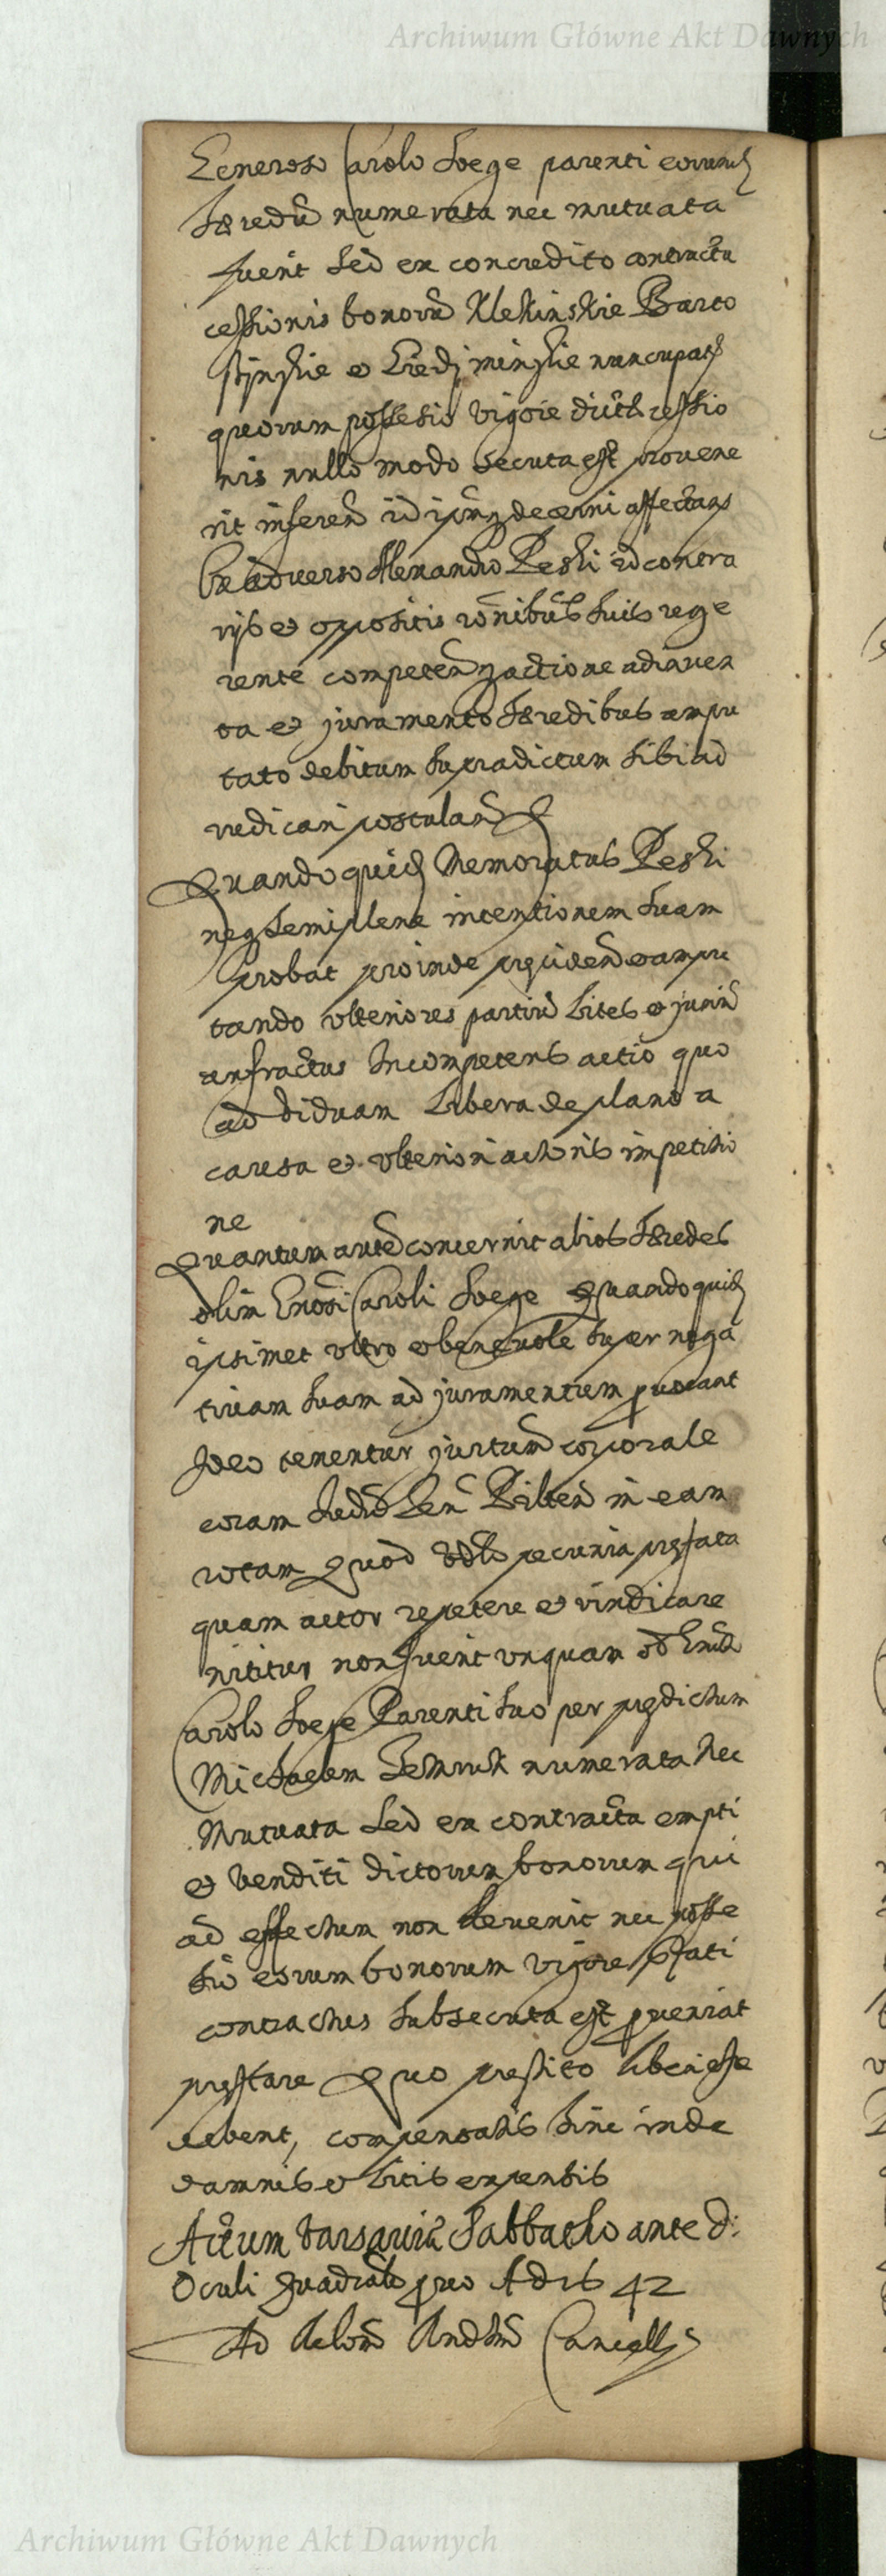 Archiwum Główne Akt Dawnych
Generoso Carolo Soege parenti eorund
Hæredũ numerata nec mutuata
fuerit Sed ex concredito contractu
cessionis bonorũ Klekinskie Barto
et nuncupat
quorum possesio vigore dictæ cessio
nis nullo modo secuta est provene
rit inferen id ipsum decerni affectans
Ex adverso Alexandro Peski ad contra
rijs et oppositis rõnibus suis rege
rente competen actione adinven
ta et juramento Hæredibus ampu
tato debitum supradictum sibi ad
iudicari postulan
Quandoquid Memoratus Peski
neq semiplene intentionem suam
probat proinde præciden ampu
tando ulteriores partiũ lites et juriũ
anfractus Incompetens actio quo
ad Viduam Libera de plano a
causa et ulteriori actoris impetitio
ne
Quantum autẽ concernit alios Hæredes
olim Gnosi Caroli Soege Quandoquid
ipsimet ultro et benevole super nega
tivam suam ad juramentum provocant
Ideo tenentur jurtum corporale
coram Judio Pilten in eam
rotam Quod pecunia præfata
quam actor repetere et vindicare
nititur non fuerit unquam
Carolo Soege Parenti suo per prædictum
Michaelem numerata Nec
Mutuata Sed ex contractu empti
et Venditi dictorum bonorum qui
ad effectum non devenit nec posse
sio eorum bonorum vigore pfati
contractus subsecuta est proveniat
præstare Quo præstito liberi esse
debent, compensatis hinc inde
damnis et litis expensis
Actum Varsaviæ Sabbatho ante d:
Oculi Quadrâlis pro Ad 16 42
Ad Relõem Cancell
Archiwum Główne Akt Dawnych